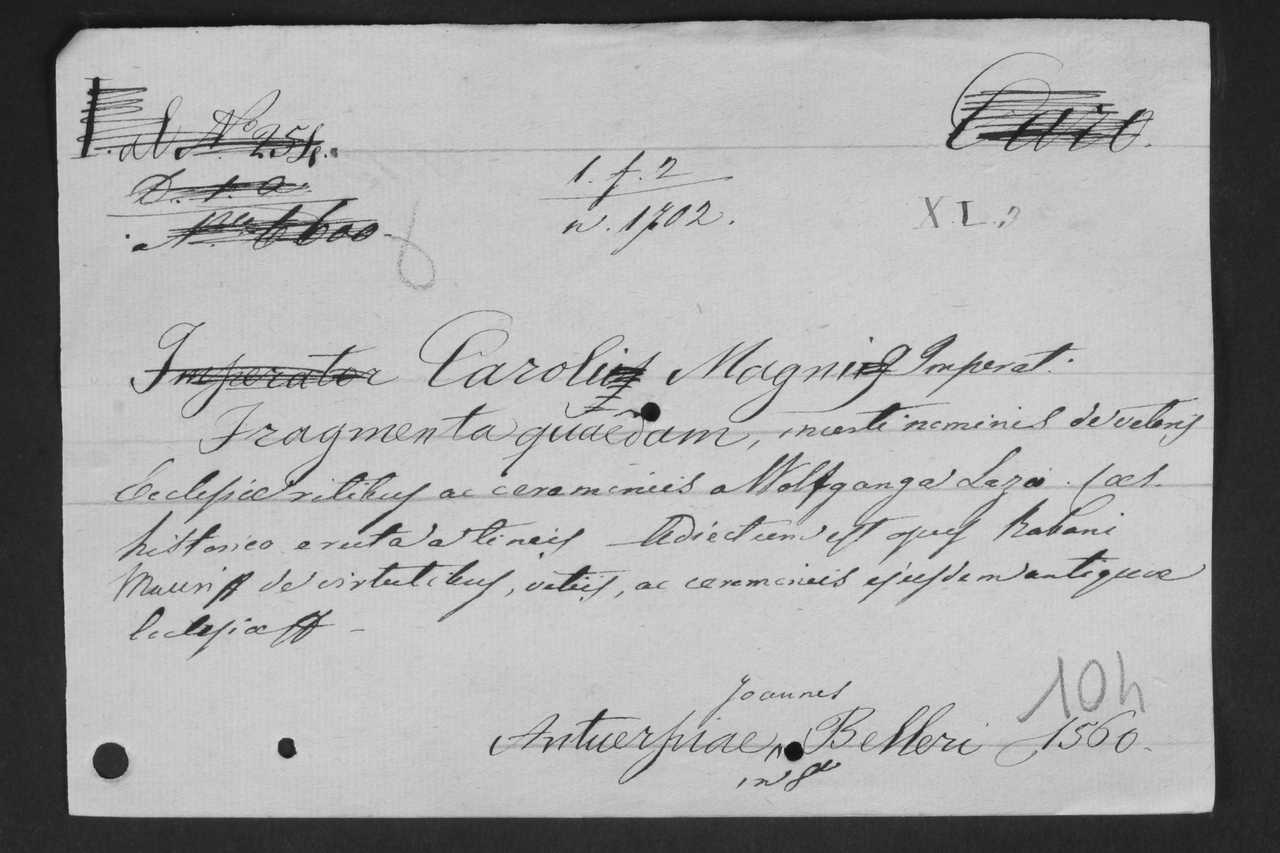 ab No 254.
Caro.
D. 1. a.
1. f. 2
Nro 6600
n. 1702.
X L.
Imperator Caroli Magni Imperat.
Fragmenta quaedam, incerti nominis de veteris
Ecclesiae ritibus ac ceremoniis a Wolfganga Lazio
historico eruta a tineis Adiectum est opus Rabani
Mauri de virtutibus, vitiis, ac ceremoniis ejusdem antiquae
Ecclesiae
10h
Joannes
Antuerpiae Belleri 1560.
in 8o